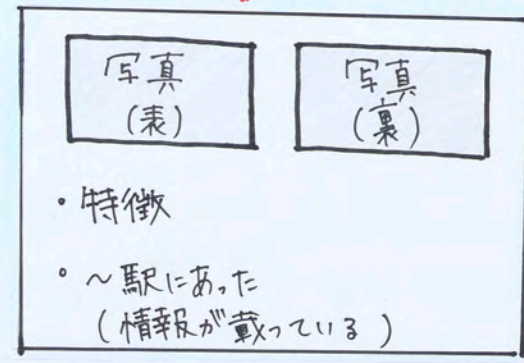 写真
(表)
写真
(裏)
・特徴
・〜駅にあった
(情報が載っている)